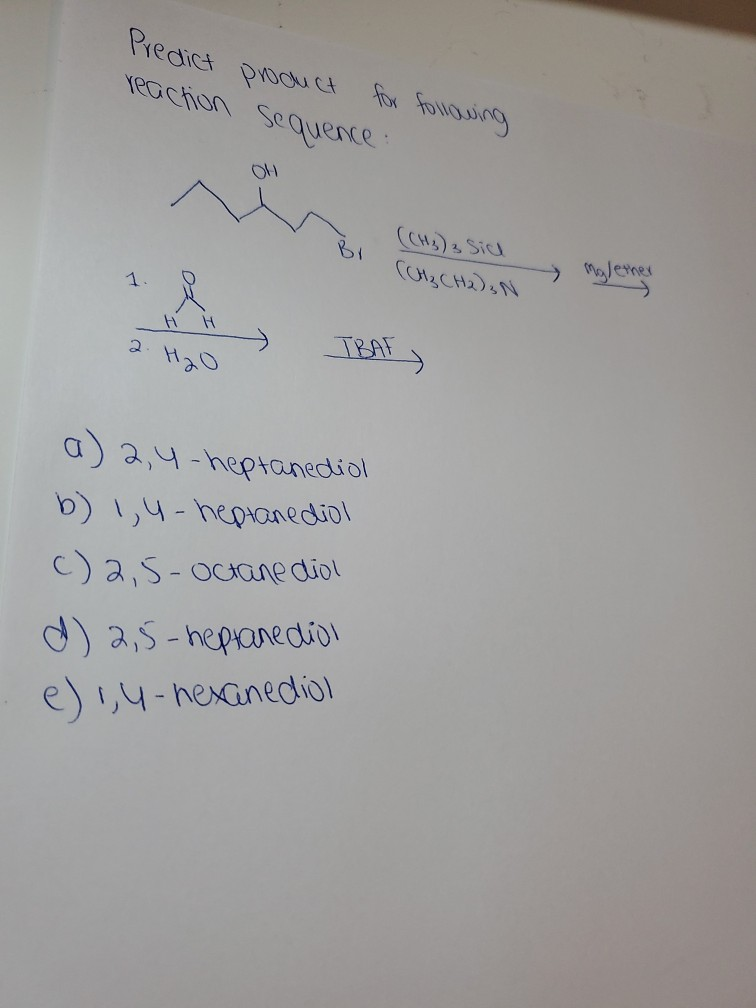 Predict product for following
reaction Sequence:
OH
Br
(CH3)3 SiCl
(CH3CH2)3N
Mg/ether
1.
O
H H
2. H2O
TBAF
a) 2,4-heptanediol
b) 1,4-heptanediol
c) 2,5-octanediol
d) 2,5-heptanediol
e) 1,4-hexanediol